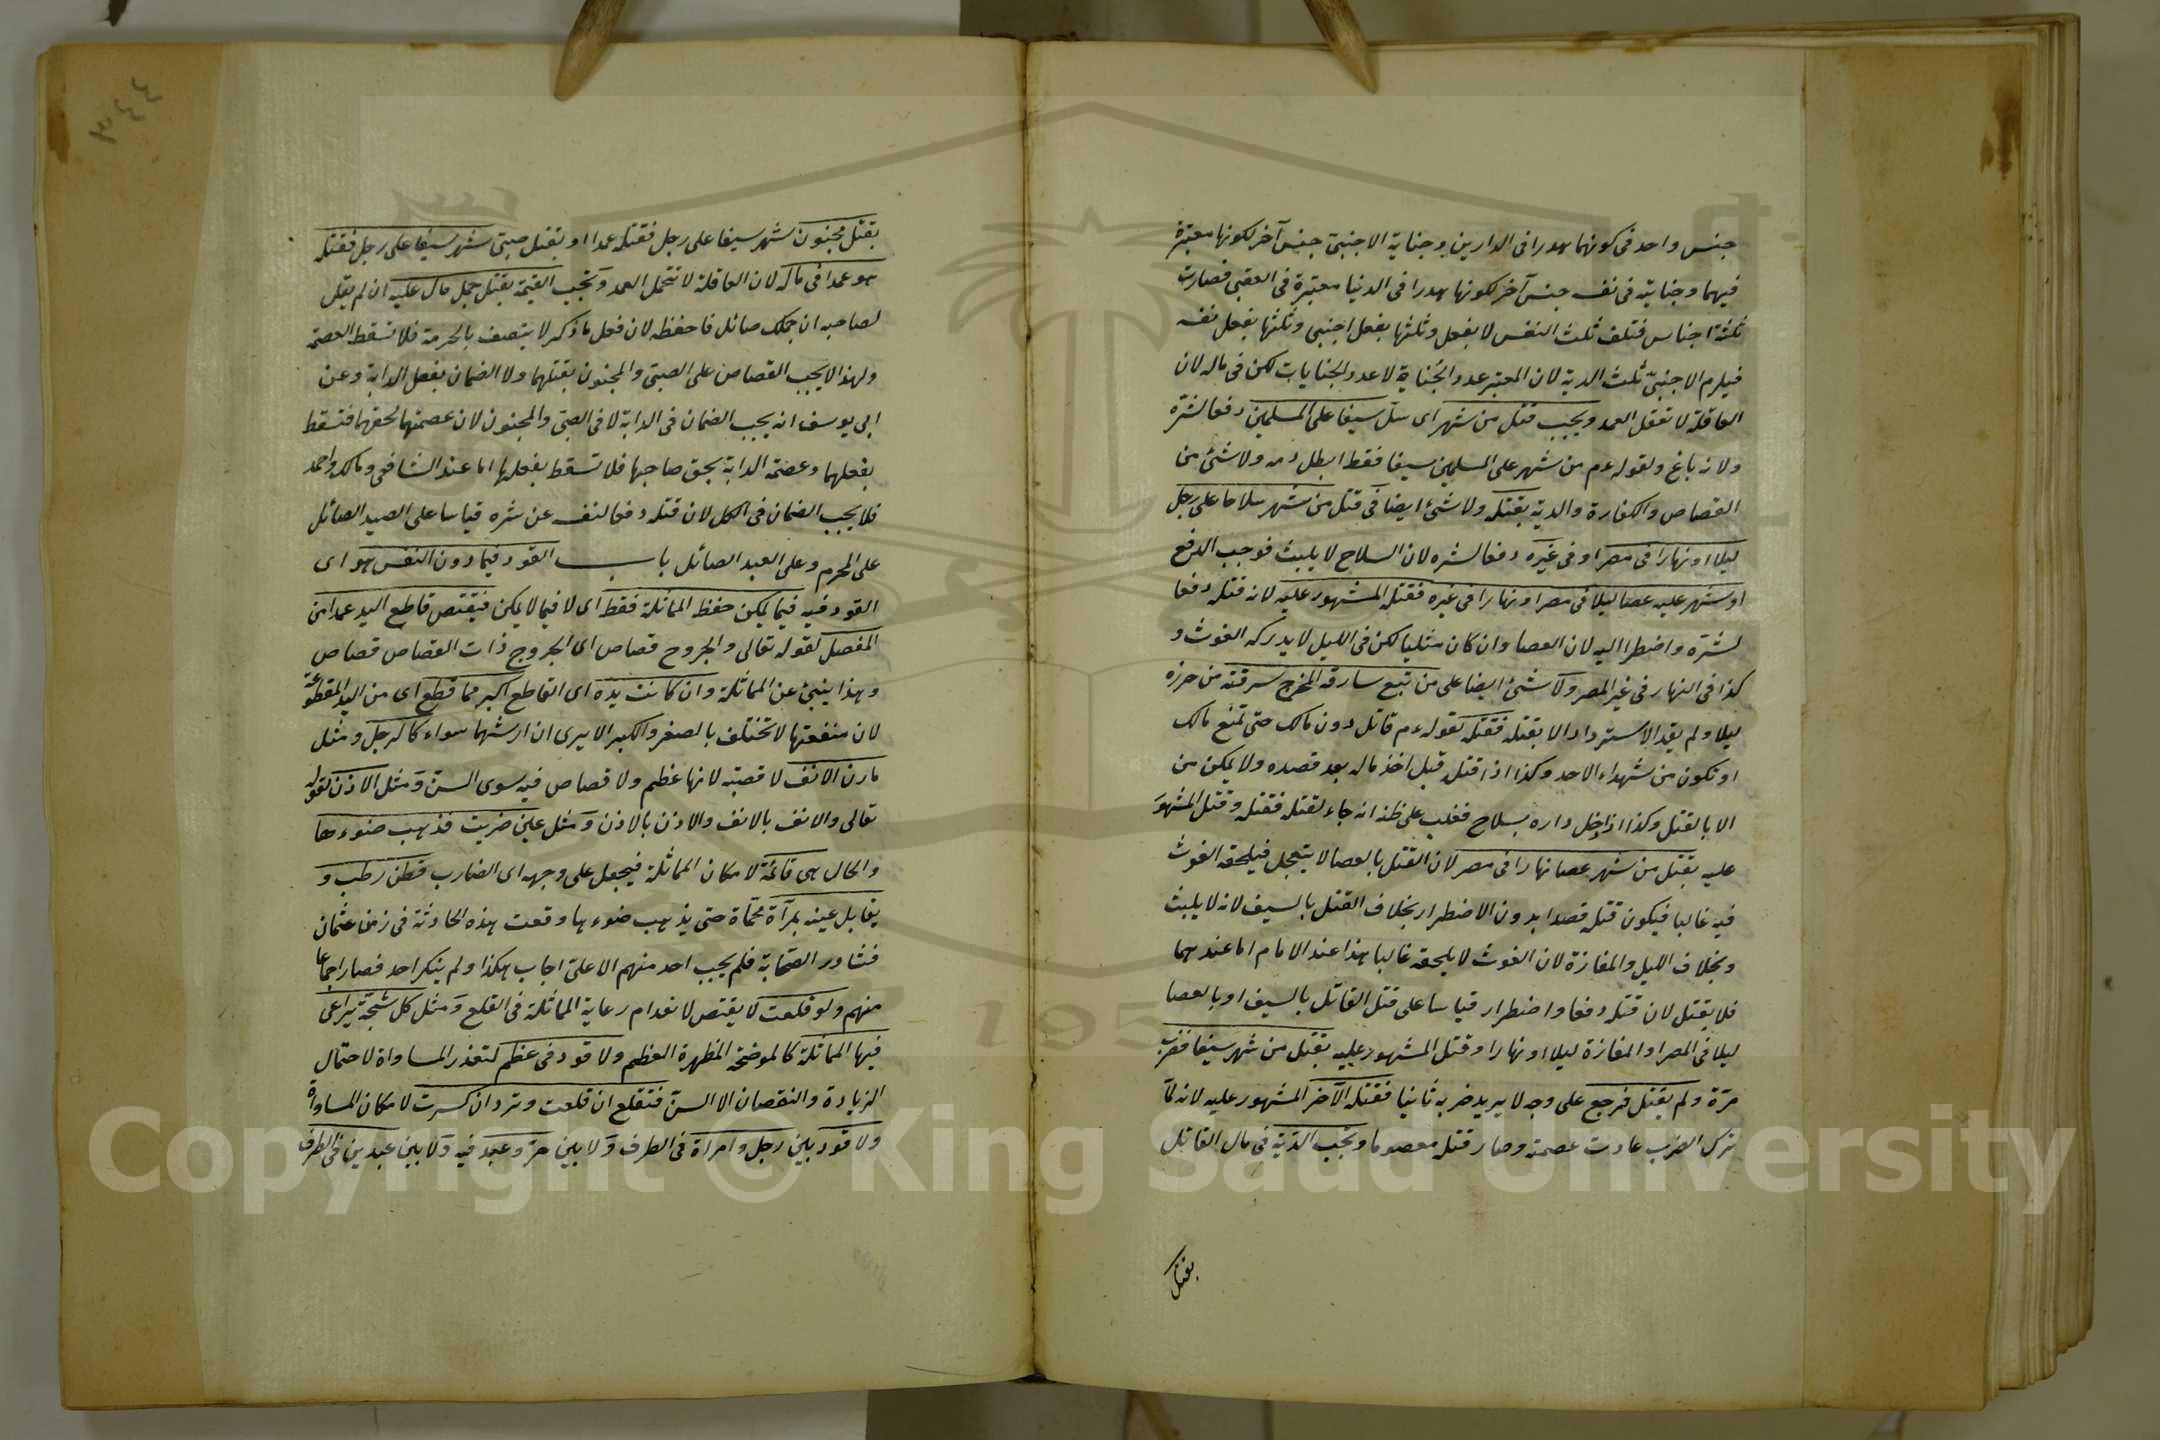 جنس واحد فى كونهما هدرا فى الدارين وجناية الاجنبى جنس آخر لكونها معتبرة
فيهما وجنايته فى نفسه جنس آخر لكونها هدرا فى الدنيا معتبرة فى العقبى فصارت
ثلثة اجناس فتلف ثلث النفس لا بفعل وثلثها بفعل اجنبى وثلثها بفعل نفسه
فيلزم الاجنبىّ ثلث الدية لان المعتبر عدد الجناية لا عدد الجنايات لكن فى ماله لان
العاقلة لا تعقل العمد ويجب قتل من شهر اى سلّ سيفا على المسلمين دفعا لشرّه
ولانه باغ ولقوله ءم من شهر على المسلمين سيفا فقط ابطل دمه ولا شئ من
القصاص والكفارة والدية بقتله ولا شئ ايضا فى قتل من شهر سلاحا على رجل
ليلا او نهارا فى مصر او فى غيره دفعا لشره لان السلاح لا يلبث فوجب الدفع
او شهر عليه عصا ليلا فى مصر او نهارا فى غيره فقتله المشهور عليه لانه قتله دفعا
لشرّه واضطرا اليه لان العصا وان كان مثليا لكن فى الليل لا يدركه الغوث و
كذا فى النهار فى غير المصر ولا شئ ايضا على من تبع سارقه المخرج سرقته من حرزه
ليلا ولم يقد الاسترداد الا بقتله فقتله لقوله ءم قاتل دون مالك حتى تمنع مالك
او تكون من شهداء الاحد وكذا اذا قتله قبل اخذ ماله بعد قصده ولا يمكن من
الا بالقتل وكذا اذا دخل داره بسلاح فغلب على ظنه انه جاء لقتله فقتله وقتل المشهور
عليه يقتل من شهر عصا نهارا فى مصر لان القتل بالعصا لا يتعجل فيلحقه الغوث
فيه غالبا فيكون قتله قصدا بدون الاضطرار بخلاف القتل بالسيف لانه لا يلبث
وبخلاف الليل والمفازة لان الغوث لا يلحقه غالبا هذا عند الامام اما عندهما
فلا يقتل لان قتله دفعا واضطرار قياسا على قتل القاتل بالسيف او بالعصا
ليلا فى المصر او المفازة ليلا او نهارا وقتل المشهور عليه يقتل من شهر سيفا فضرب
مرّة ولم يقتل فرجع على وجه لا يريد ضربه ثانيا فقتله الآخر المشهور عليه لانه لمّا
ترك الضرب عادت عصمته وصار قتله معصوما ويجب الدّية فى مال القاتل
بقتل
٣٤٤
بقتل مجنون شهر سيفا على رجل فقتله عمدا او بقتل صبىّ شهر سيفا على رجل فقتله
هو عمدا فى ماله لان العاقلة لا تتحمل العمد وتجب القيمة بقتل جمل صال عليه ان لم يقل
لصاحبه ان جملك صائل فاحفظه لان فعل ما ذكر لا يتصف بالحرمة فلا تسقط العصمة
ولهذا لا يجب القصاص على الصبى والمجنون بقتلهما ولا الضمان بفعل الدابة وعن
ابى يوسف انه يجب الضمان فى الدابة لا فى الصبى والمجنون لان عصمتهما لحقهما فتسقط
بفعلهما وعصمة الدابة بحق صاحبها فلا تسقط بفعلها اما عند الشافعى ومالك واحمد
فلا يجب الضمان فى الكل لان قتله دفعا لنفسه عن شره قياسا على الصيد الصائل
على المحرم وعلى العبد الصائل باب القود فيما دون النفس هو اى
القود فيه فيما يمكن حفظ المماثلة فقط اى لا فيما لا يمكن فيقتص قاطع اليد عمدا من
المفصل لقوله تعالى والجروح قصاص اى الجروح ذات القصاص قصاص
وهذا ينبئ عن المماثلة وان كانت يده اى القاطع اكبر مما قطع اى من اليد المقطوعة
لان منفعتها لا تختلف بالصغر والكبر الا يرى ان ارشهما سواء كالرجل ومثل
مارن الانف لا قصبته لانها عظم ولا قصاص فيه سوى السن ومثل الاذن لقوله
تعالى والانف بالانف والاذن بالاذن ومثل عين ضربت فذهب ضوءها
والحال هى قائمة لا مكان المماثلة فيجعل على وجهه اى الضارب قطن رطب و
يقابل عينه بمرآة محمّاة حتى يذهب ضوءها وقعت هذه الحادثة فى زمن عثمان
فشاور الصّحابة فلم يجب احد منهم الا علىّ اجاب هكذا ولم ينكر احد فصار اجماعا
منهم ولو قلعت لا يقتص لانعدام رعاية المماثلة فى القلع ومثل كل شجّة يراعى
فيها المماثلة كالموضحة المظهرة العظم ولا قود فى عظم لتعذر المساواة لاحتمال
الزيادة والنقصان الا السنّ فتقلع ان قلعت وتبرد ان كسرت لامكان المساواة
ولا قود بين رجل وامراة فى الطرف ولا بين حرّ وعبد فيه ولا بين عبدين فى الطرف
Copyright © King Saud University